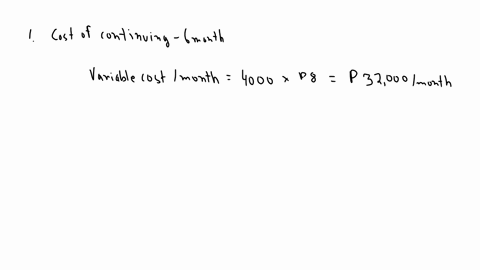 1. Cost of continuing - 6 month
Variable cost / month = 4000 × P8 = P 32,000 / month